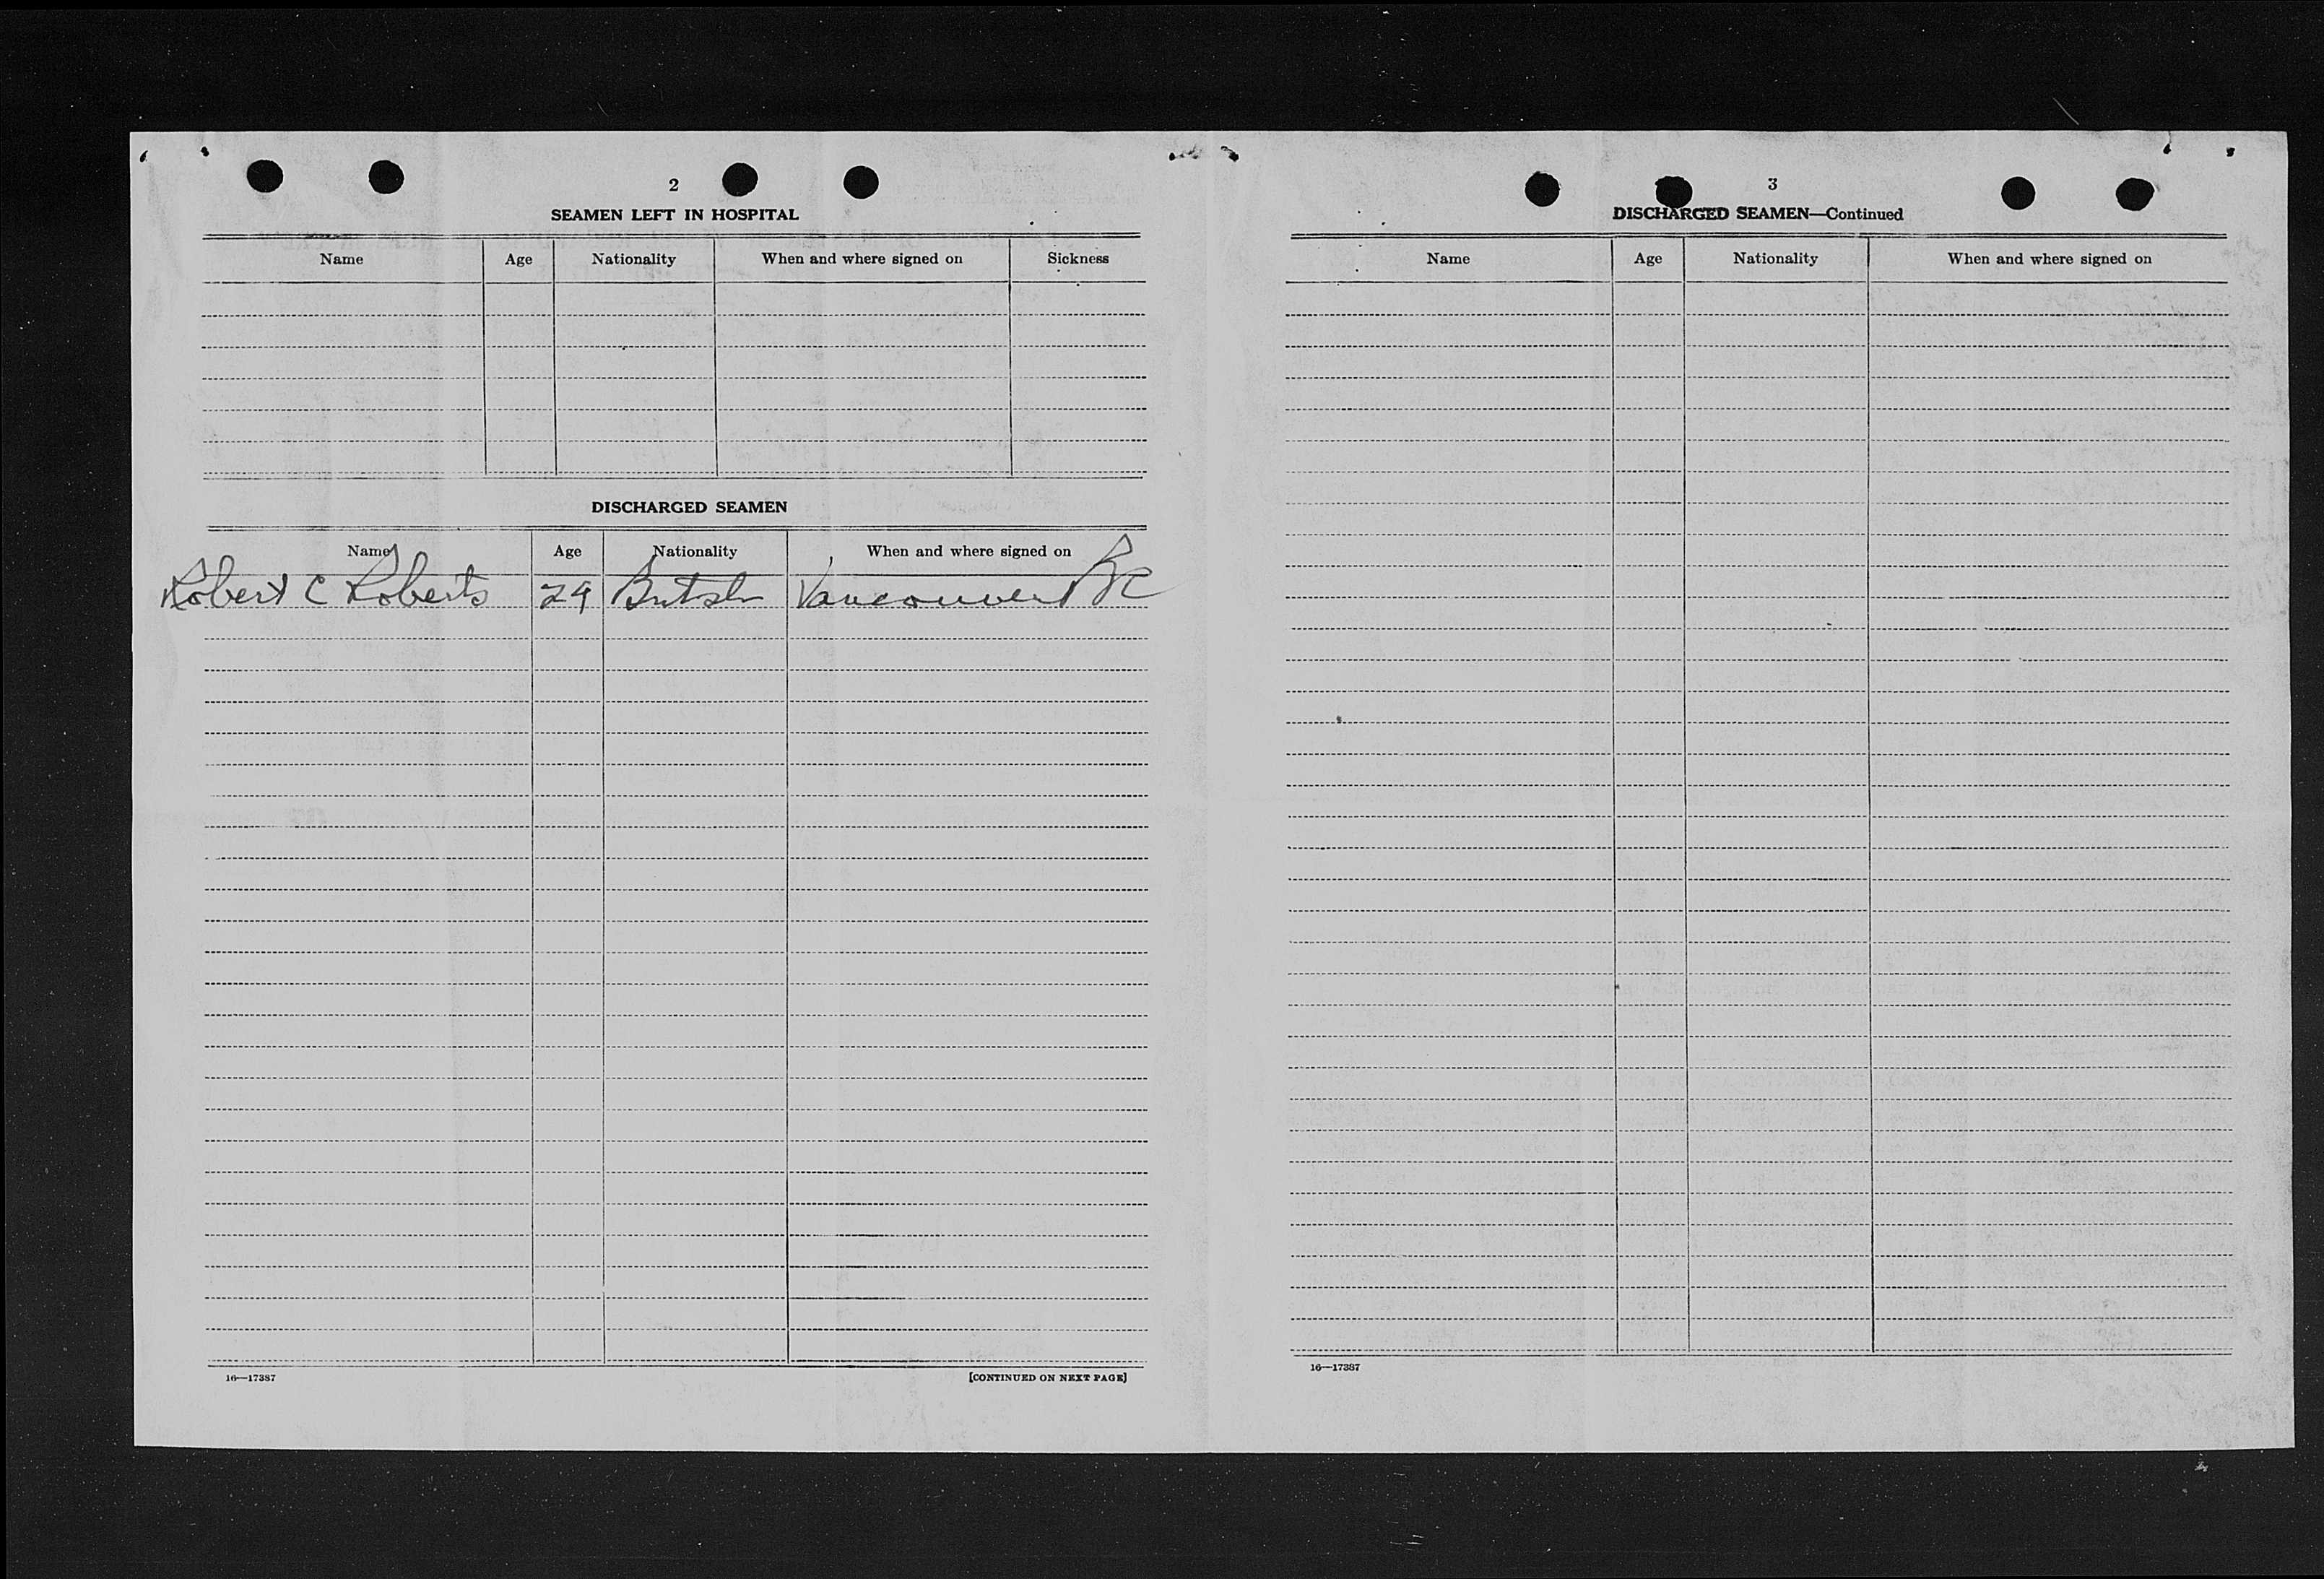 2
SEAMEN LEFT IN HOSPITAL
Name Age Nationality When and where signed on Sickness
DISCHARGED SEAMEN
Name Age Nationality When and where signed on
Robert C Roberts 29 British Vancouver BC
16—17387 [CONTINUED ON NEXT PAGE]
3
DISCHARGED SEAMEN—Continued
Name Age Nationality When and where signed on
16—17387